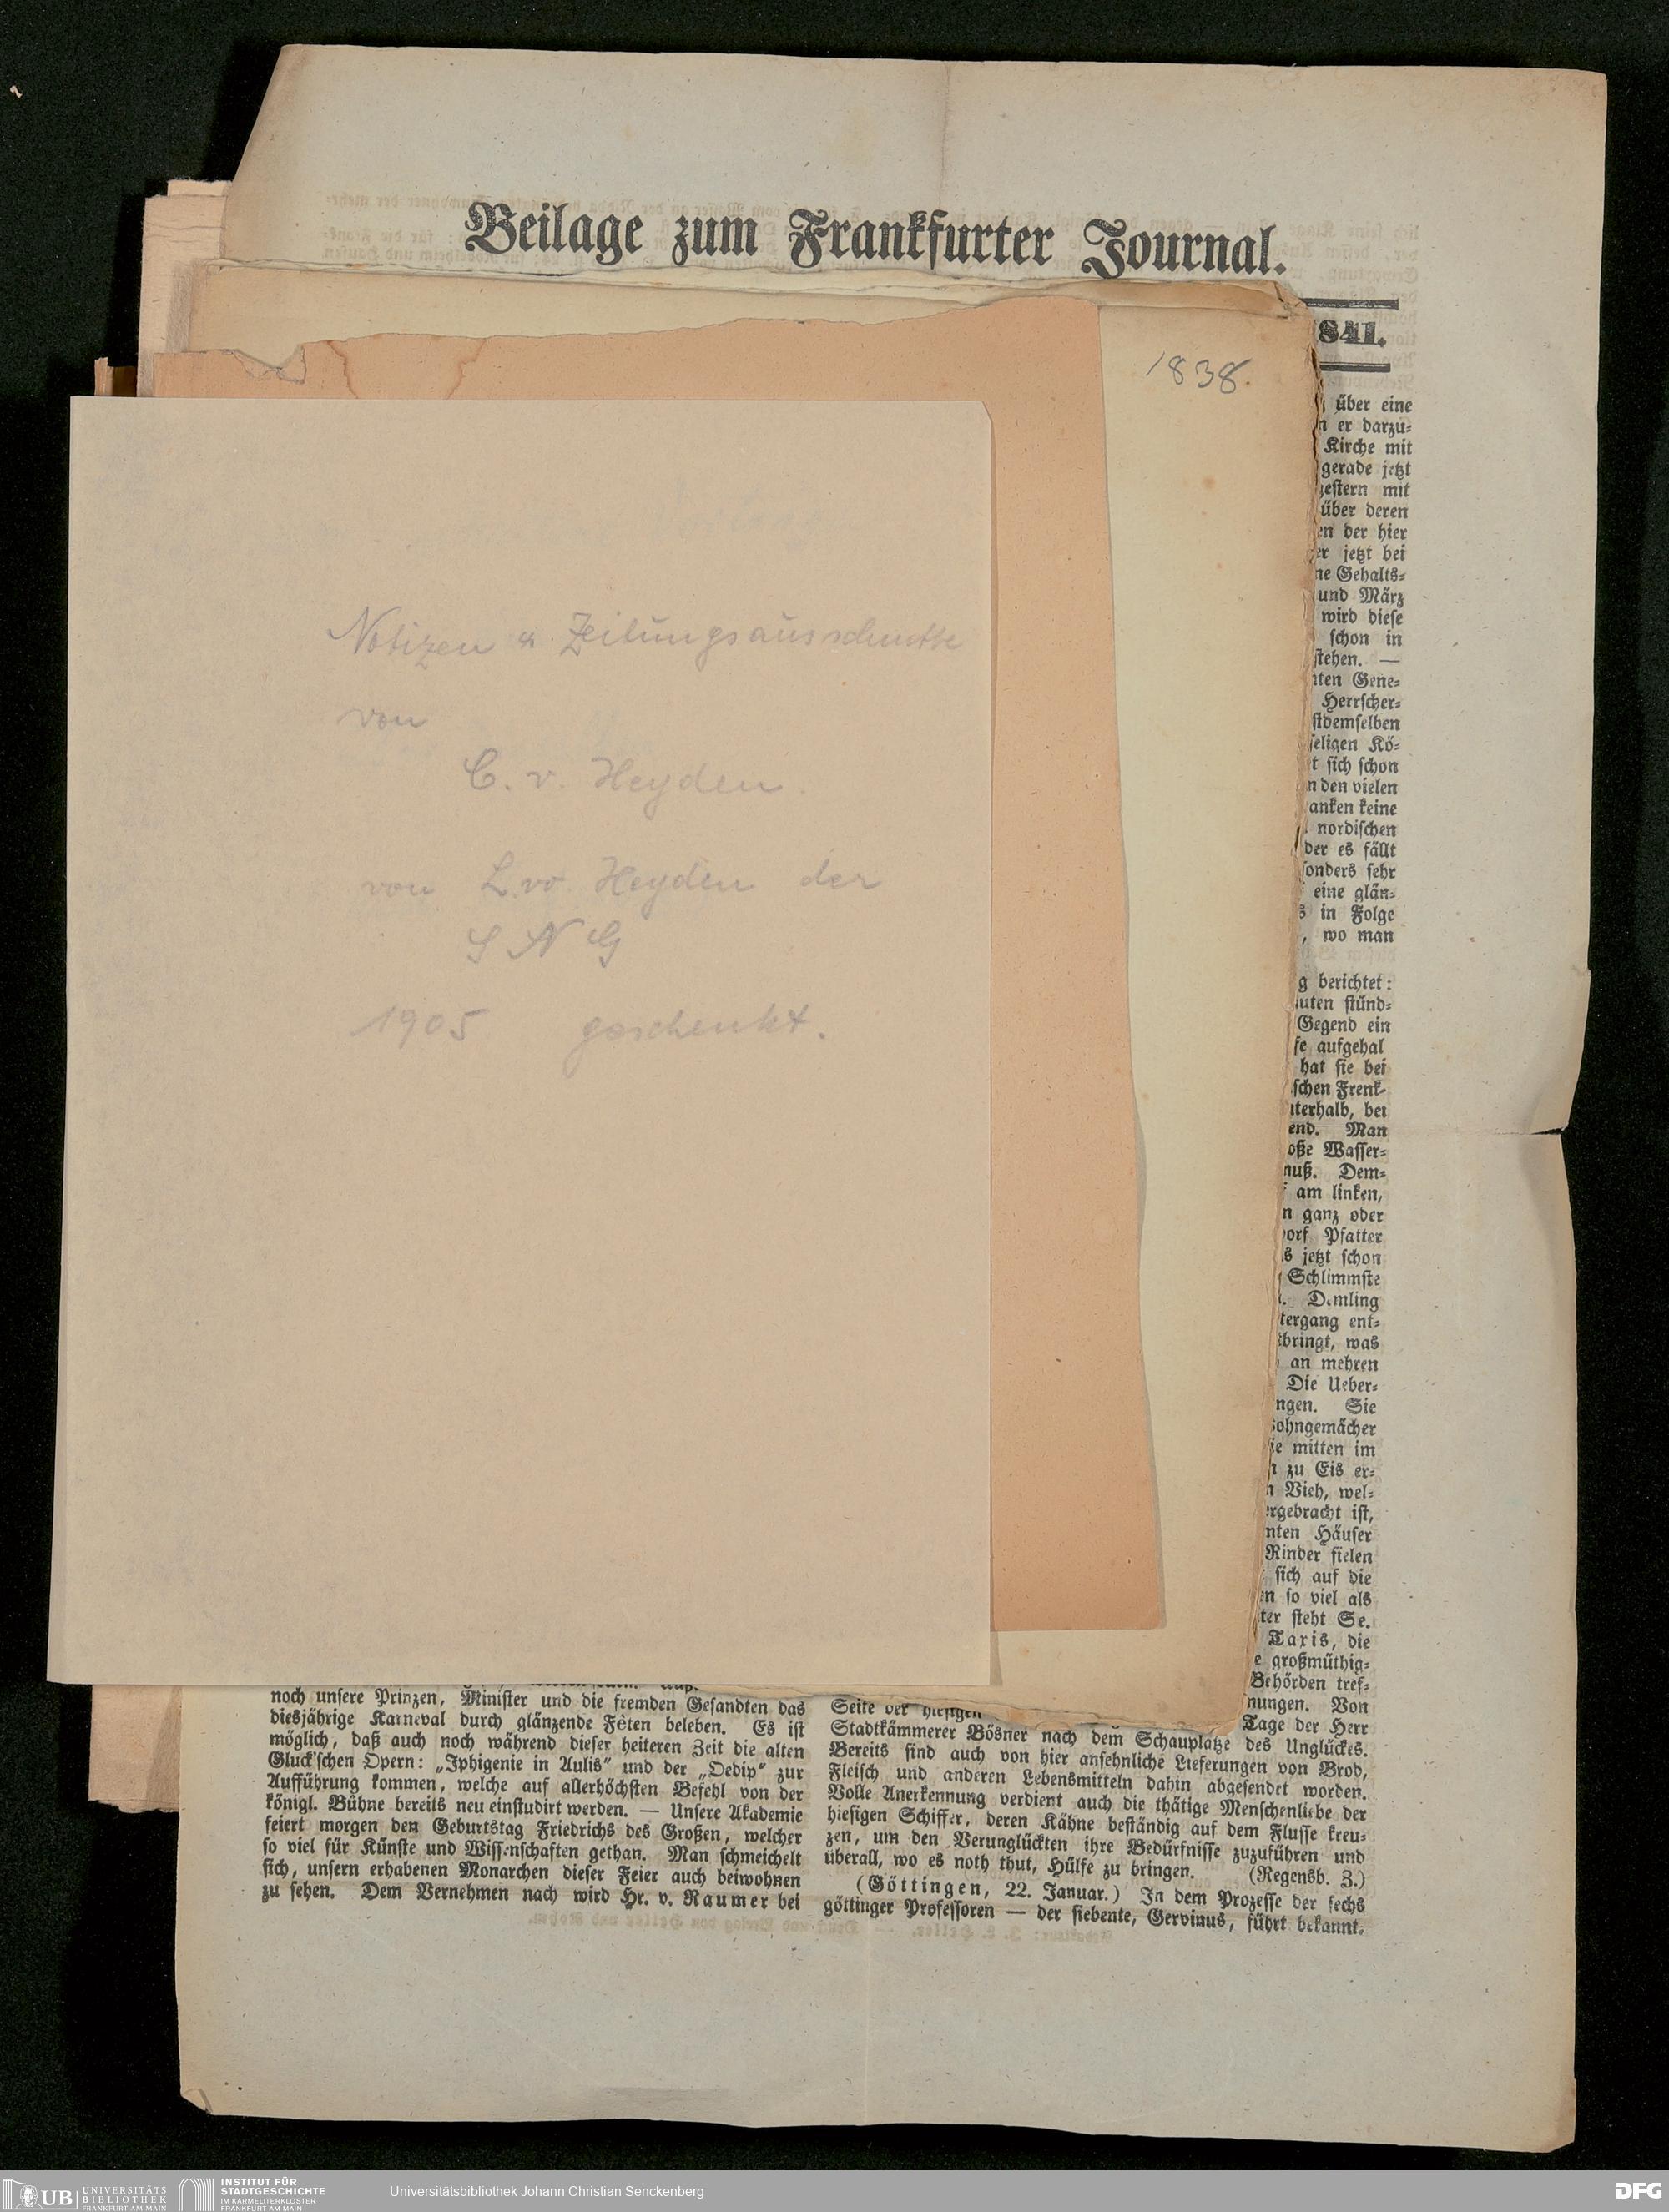 Beilage zum Frankfurter Journal.
841.
1838.
Notizen & Zeitungsausschnitte
von
C. v. Heyden.
von L. v. Heyden der
S N G
1905 geschenkt.
über eine
er darzu⸗
Kirche mit
gerade jetzt
mit
über deren
der hier
jetzt bei
Gehalts⸗
und März
wird dieſe
ſchon in
ſtehen. —
Gene⸗
Herrſcher⸗
Kö⸗
ſich ſchon
den vielen
keine
nordiſchen
der es fällt
ſehr
eine glän⸗
in Folge
, wo man
berichtet:
ſtünd⸗
Gegend ein
aufgehal
hat ſie bei
Frenk⸗
bei
Man
Waſſer⸗
Dem⸗
am linken,
ganz oder
Pfatter
jetzt ſchon
Schlimmſte
ent⸗
was
an mehren
Die Ueber⸗
Sie
mitten im
zu Eis er⸗
Vieh, wel⸗
iſt,
Häuſer
Rinder fielen
ſich auf die
ſo viel als
ſteht Se.
Taxis, die
großmüthig⸗
Behörden tref⸗
Von
noch unſere Prinzen, Miniſter und die fremden Geſandten das
diesjährige Karneval durch glänzende Fêten beleben. Es iſt
möglich, daß auch noch während dieſer heiteren Zeit die alten
Gluck'ſchen Opern: „Iphigenie in Aulis“ und der „Oedip“ zur
Aufführung kommen, welche auf allerhöchſten Befehl von der
königl. Bühne bereits neu einſtudirt werden. — Unſere Akademie
feiert morgen den Geburtstag Friedrichs des Großen, welcher
ſo viel für Künſte und Wiſſenſchaften gethan. Man ſchmeichelt
ſich, unſern erhabenen Monarchen dieſer Feier auch beiwohnen
zu ſehen. Dem Vernehmen nach wird Hr. v. Raumer bei
Seite der hieſigen Tage der Herr
Stadtkämmerer Bösner nach dem Schauplatze des Unglückes.
Bereits ſind auch von hier anſehnliche Lieferungen von Brod,
Fleiſch und anderen Lebensmitteln dahin abgeſendet worden.
Volle Anerkennung verdient auch die thätige Menſchenliebe der
hieſigen Schiffer, deren Kähne beſtändig auf dem Fluſſe kreu⸗
zen, um den Verunglückten ihre Bedürfniſſe zuzuführen und
überall, wo es noth thut, Hülfe zu bringen. (Regensb. Z.)
(Göttingen, 22. Januar.) In dem Prozeſſe der ſechs
göttinger Profeſſoren — der ſiebente, Gervinus, führt bekannt⸗
UB UNIVERSITÄTS
BIBLIOTHEK
FRANKFURT AM MAIN
INSTITUT FÜR
STADTGESCHICHTE
IM KARMELITERKLOSTER
FRANKFURT AM MAIN
Universitätsbibliothek Johann Christian Senckenberg
DFG